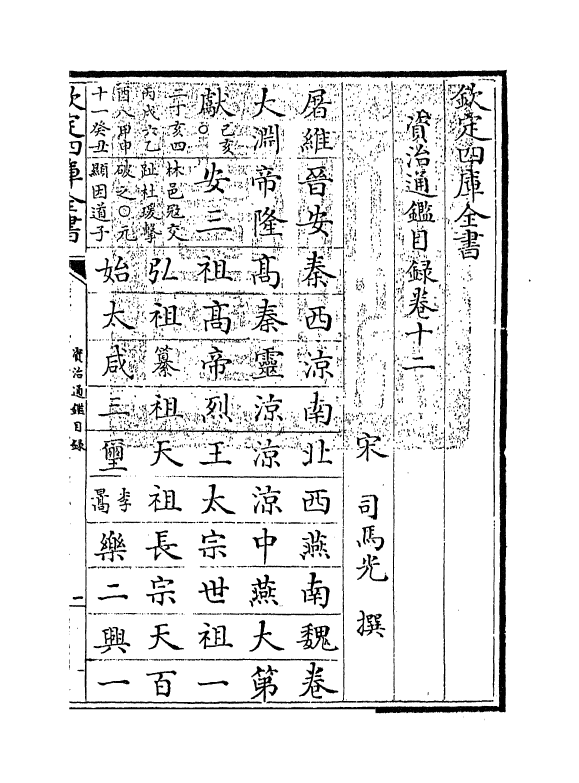 欽定四庫全書
資治通鑑目録卷十二
宋 司馬光 撰
屠維 晉安 秦 西 涼 南 北 西 燕 南 魏 卷
大淵 帝隆 高 秦 靈 涼 涼 涼 中 燕 大 第
獻 己亥○ 安三 祖 高 帝 烈 王 太 宗 世 祖 一
二丁亥四 林邑冦交
丙戌六乙 趾杜瑗擊
弘 祖 纂 祖 天 祖 長 宗 天 百
酉八甲申 破之○元
十一癸丑 顯因道子
始 太 咸 三 璽 李暠 樂 二 興 一
欽定四庫全書
資治通鑑目録